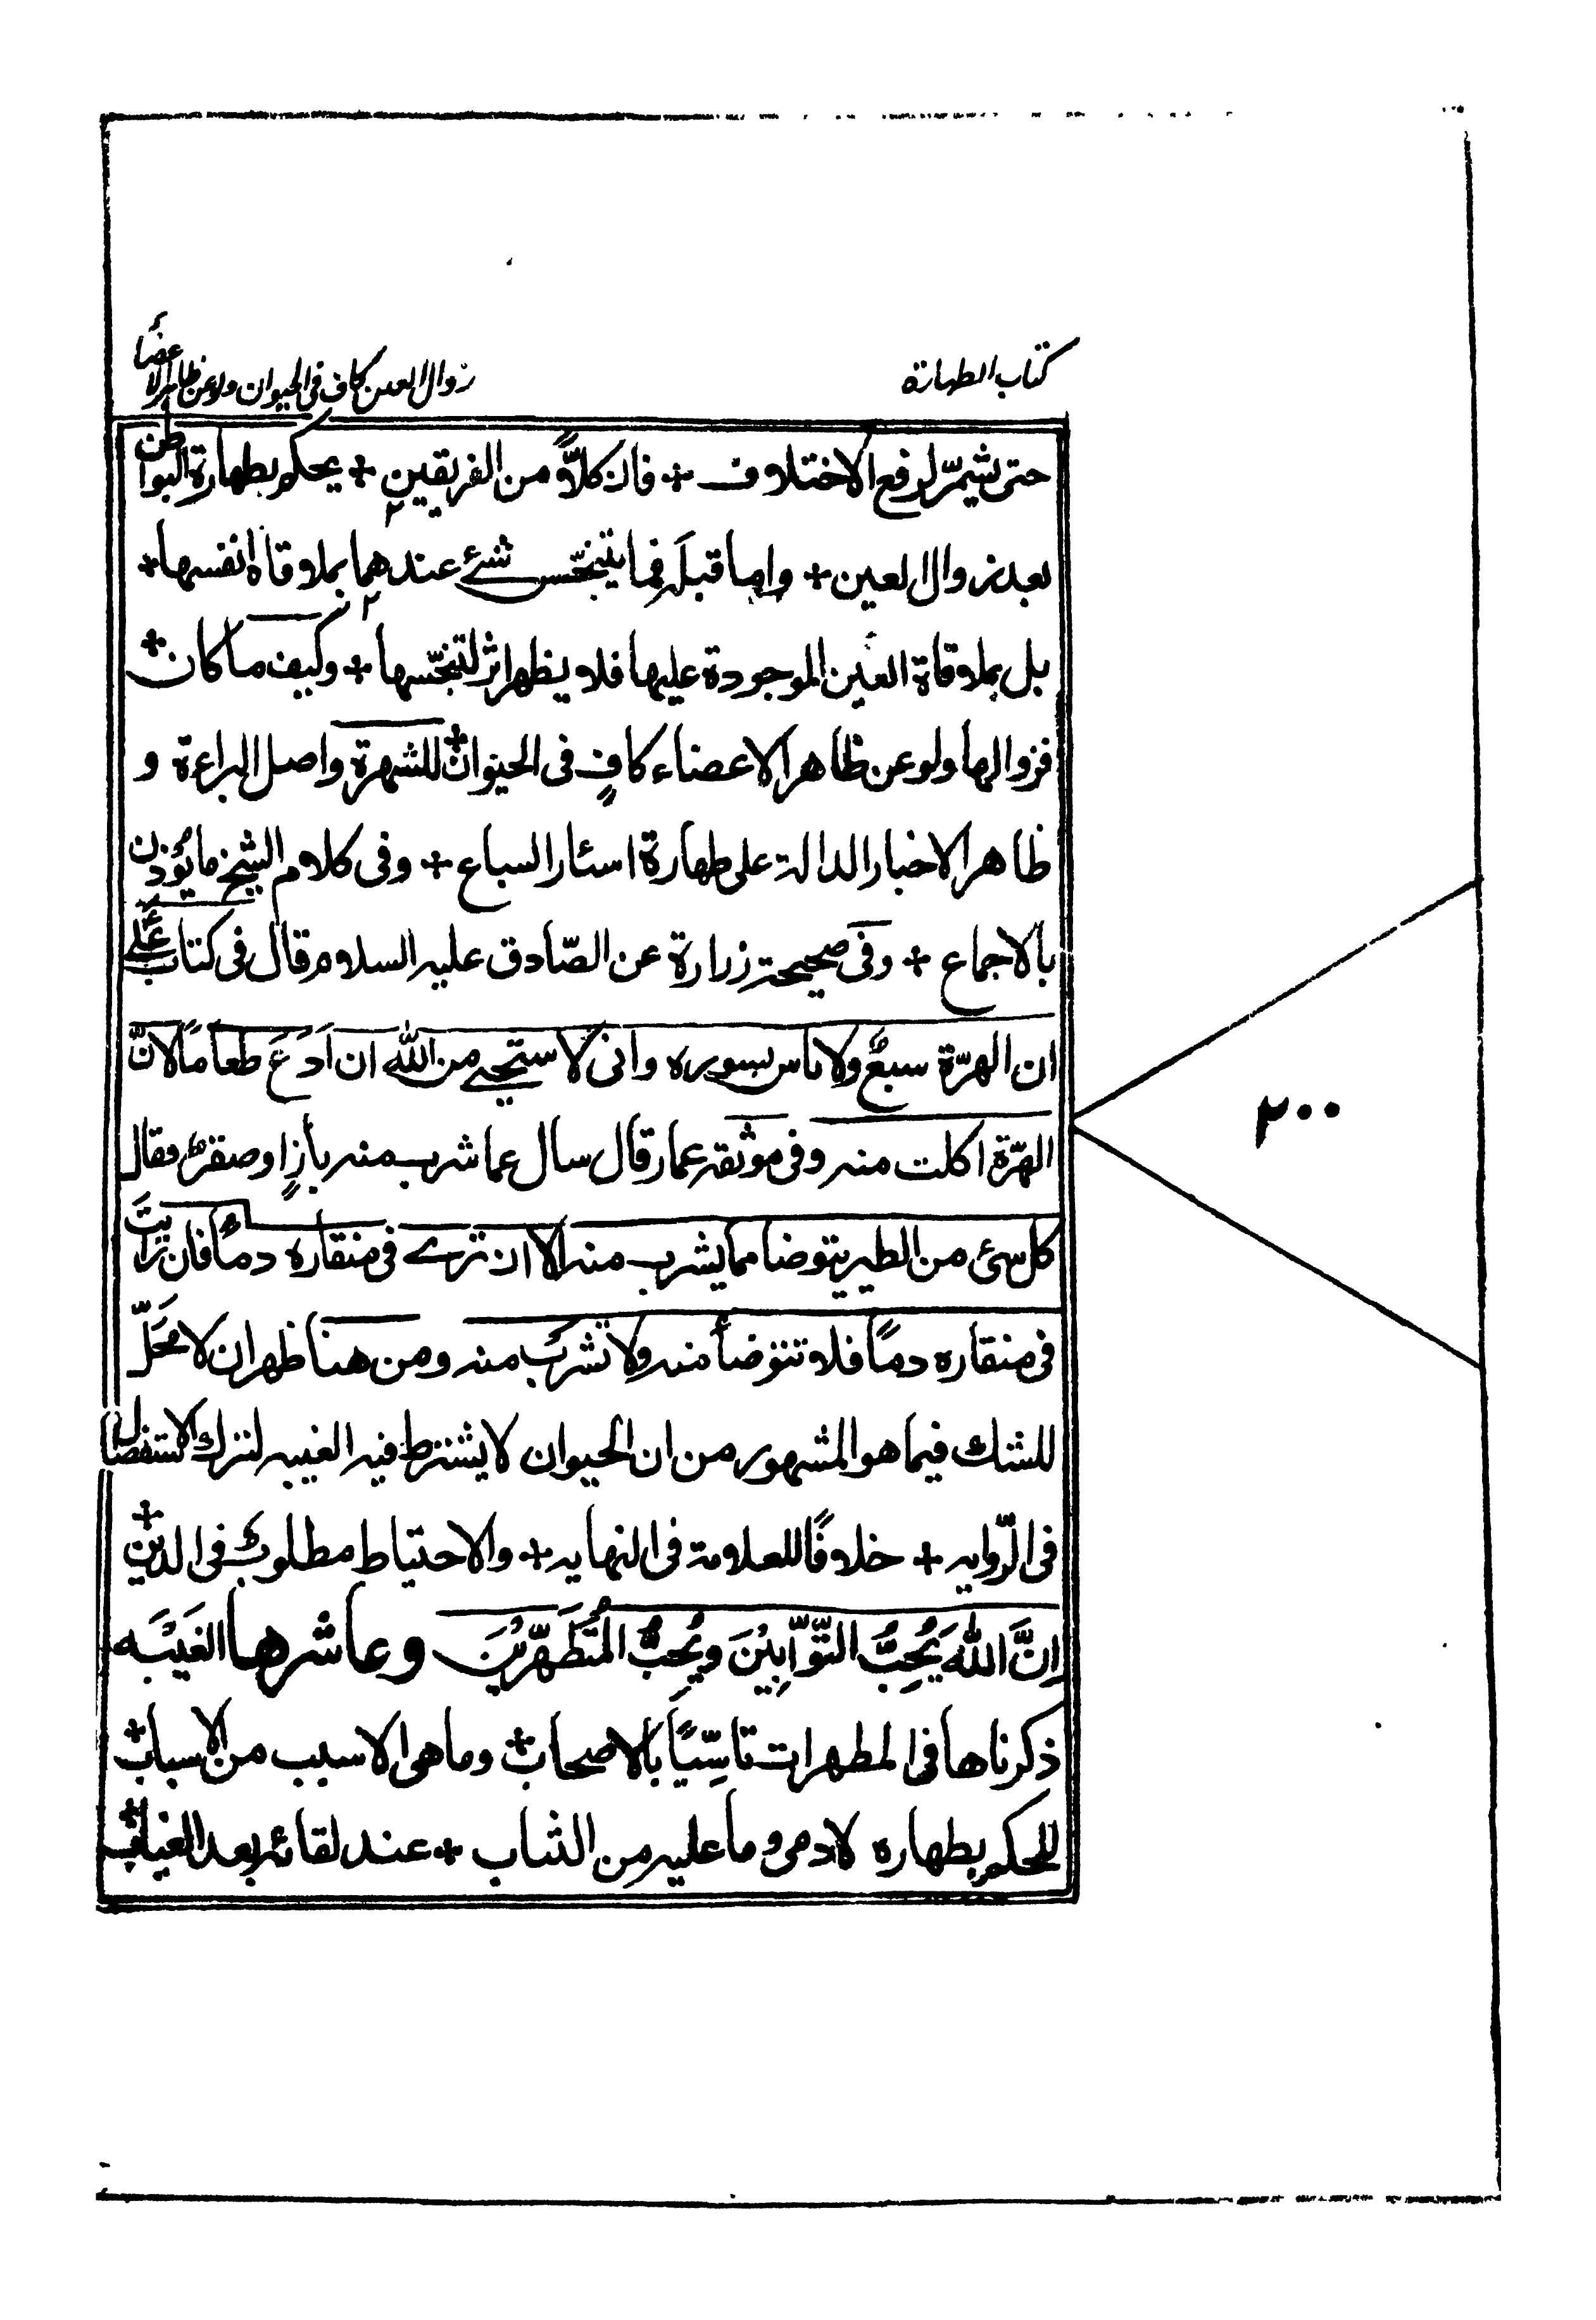 كتاب الطهارة
زوال العين كاف فى الحيوان ولو عن ظاهر الاعضاء
حتى يثمر لرفع الاختلاف + فان كلاًّ من الفريقين + يحكم بطهارة البواطن
بعد زوال العين + واما قبله فما يتنجّس شئ عندهما بملاقاة انفسها +
بل بملاقاة العين الموجودة عليها فلا يظهر اثر لتنجّسها + وكيف ما كان +
فزوالها ولو عن ظاهر الاعضاء كافٍ فى الحيوان + للشهرة واصل البراءة و
ظاهر الاخبار الدالة على طهارة اسئار السباع + وفى كلام الشيخ ما يؤذن
بالاجماع + وفى صحيحة زرارة عن الصّادق عليه السلام قال فى كتاب علي
ان الهرّة سبعٌ ولا باس بسوره وانى لاستحيي من الله ان اَدَعَ طعاماً لانّ
الهرّة اكلت منه وفى موثقه عمار قال سال عما شرب منه بأزٍ او صقرٌ فقال
كل شئ من الطير يتوضا مما يشرب منه الا ان ترى فى منقاره دماً فان رايتَ
فى منقاره دماً فلا تتوضأ منه ولا تشرب منه ومن هنا ظهر ان لا محلّ
للشك فيما هو المشهور من ان الحيوان لا يشترط فيه الغيبه لترك الاستفصال
فى الرّوايه + خلافاً للعلامة فى النهايه + والاحتياط مطلوب فى الدين +
اِنَّ اللهَ يُحِبُّ التَّوّابِيْنَ وَيُحِبُّ الْمُتَطَهِّرِيْنَ وعاشرها الغَيْبَه
ذكرناها فى المطهرات تاسِّياً بالاصحاب + وما هى الا سبب من الاسباب +
للحكم بطهاره لادمى وما عليه من الثياب + عند لقائه بعد الغياب +
٢٠٠